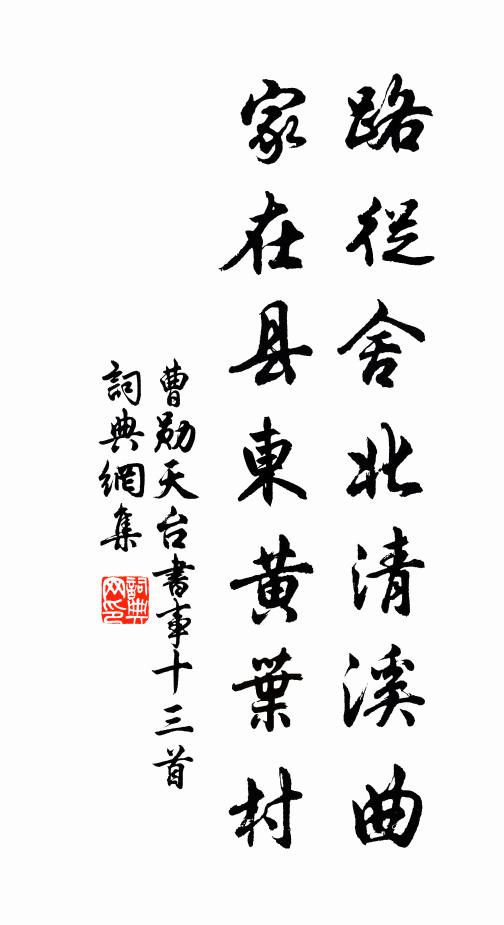 路從舍北清溪曲
家在县東黄葉村
曹勛天台書事十三首
詞典網集
詞典網印